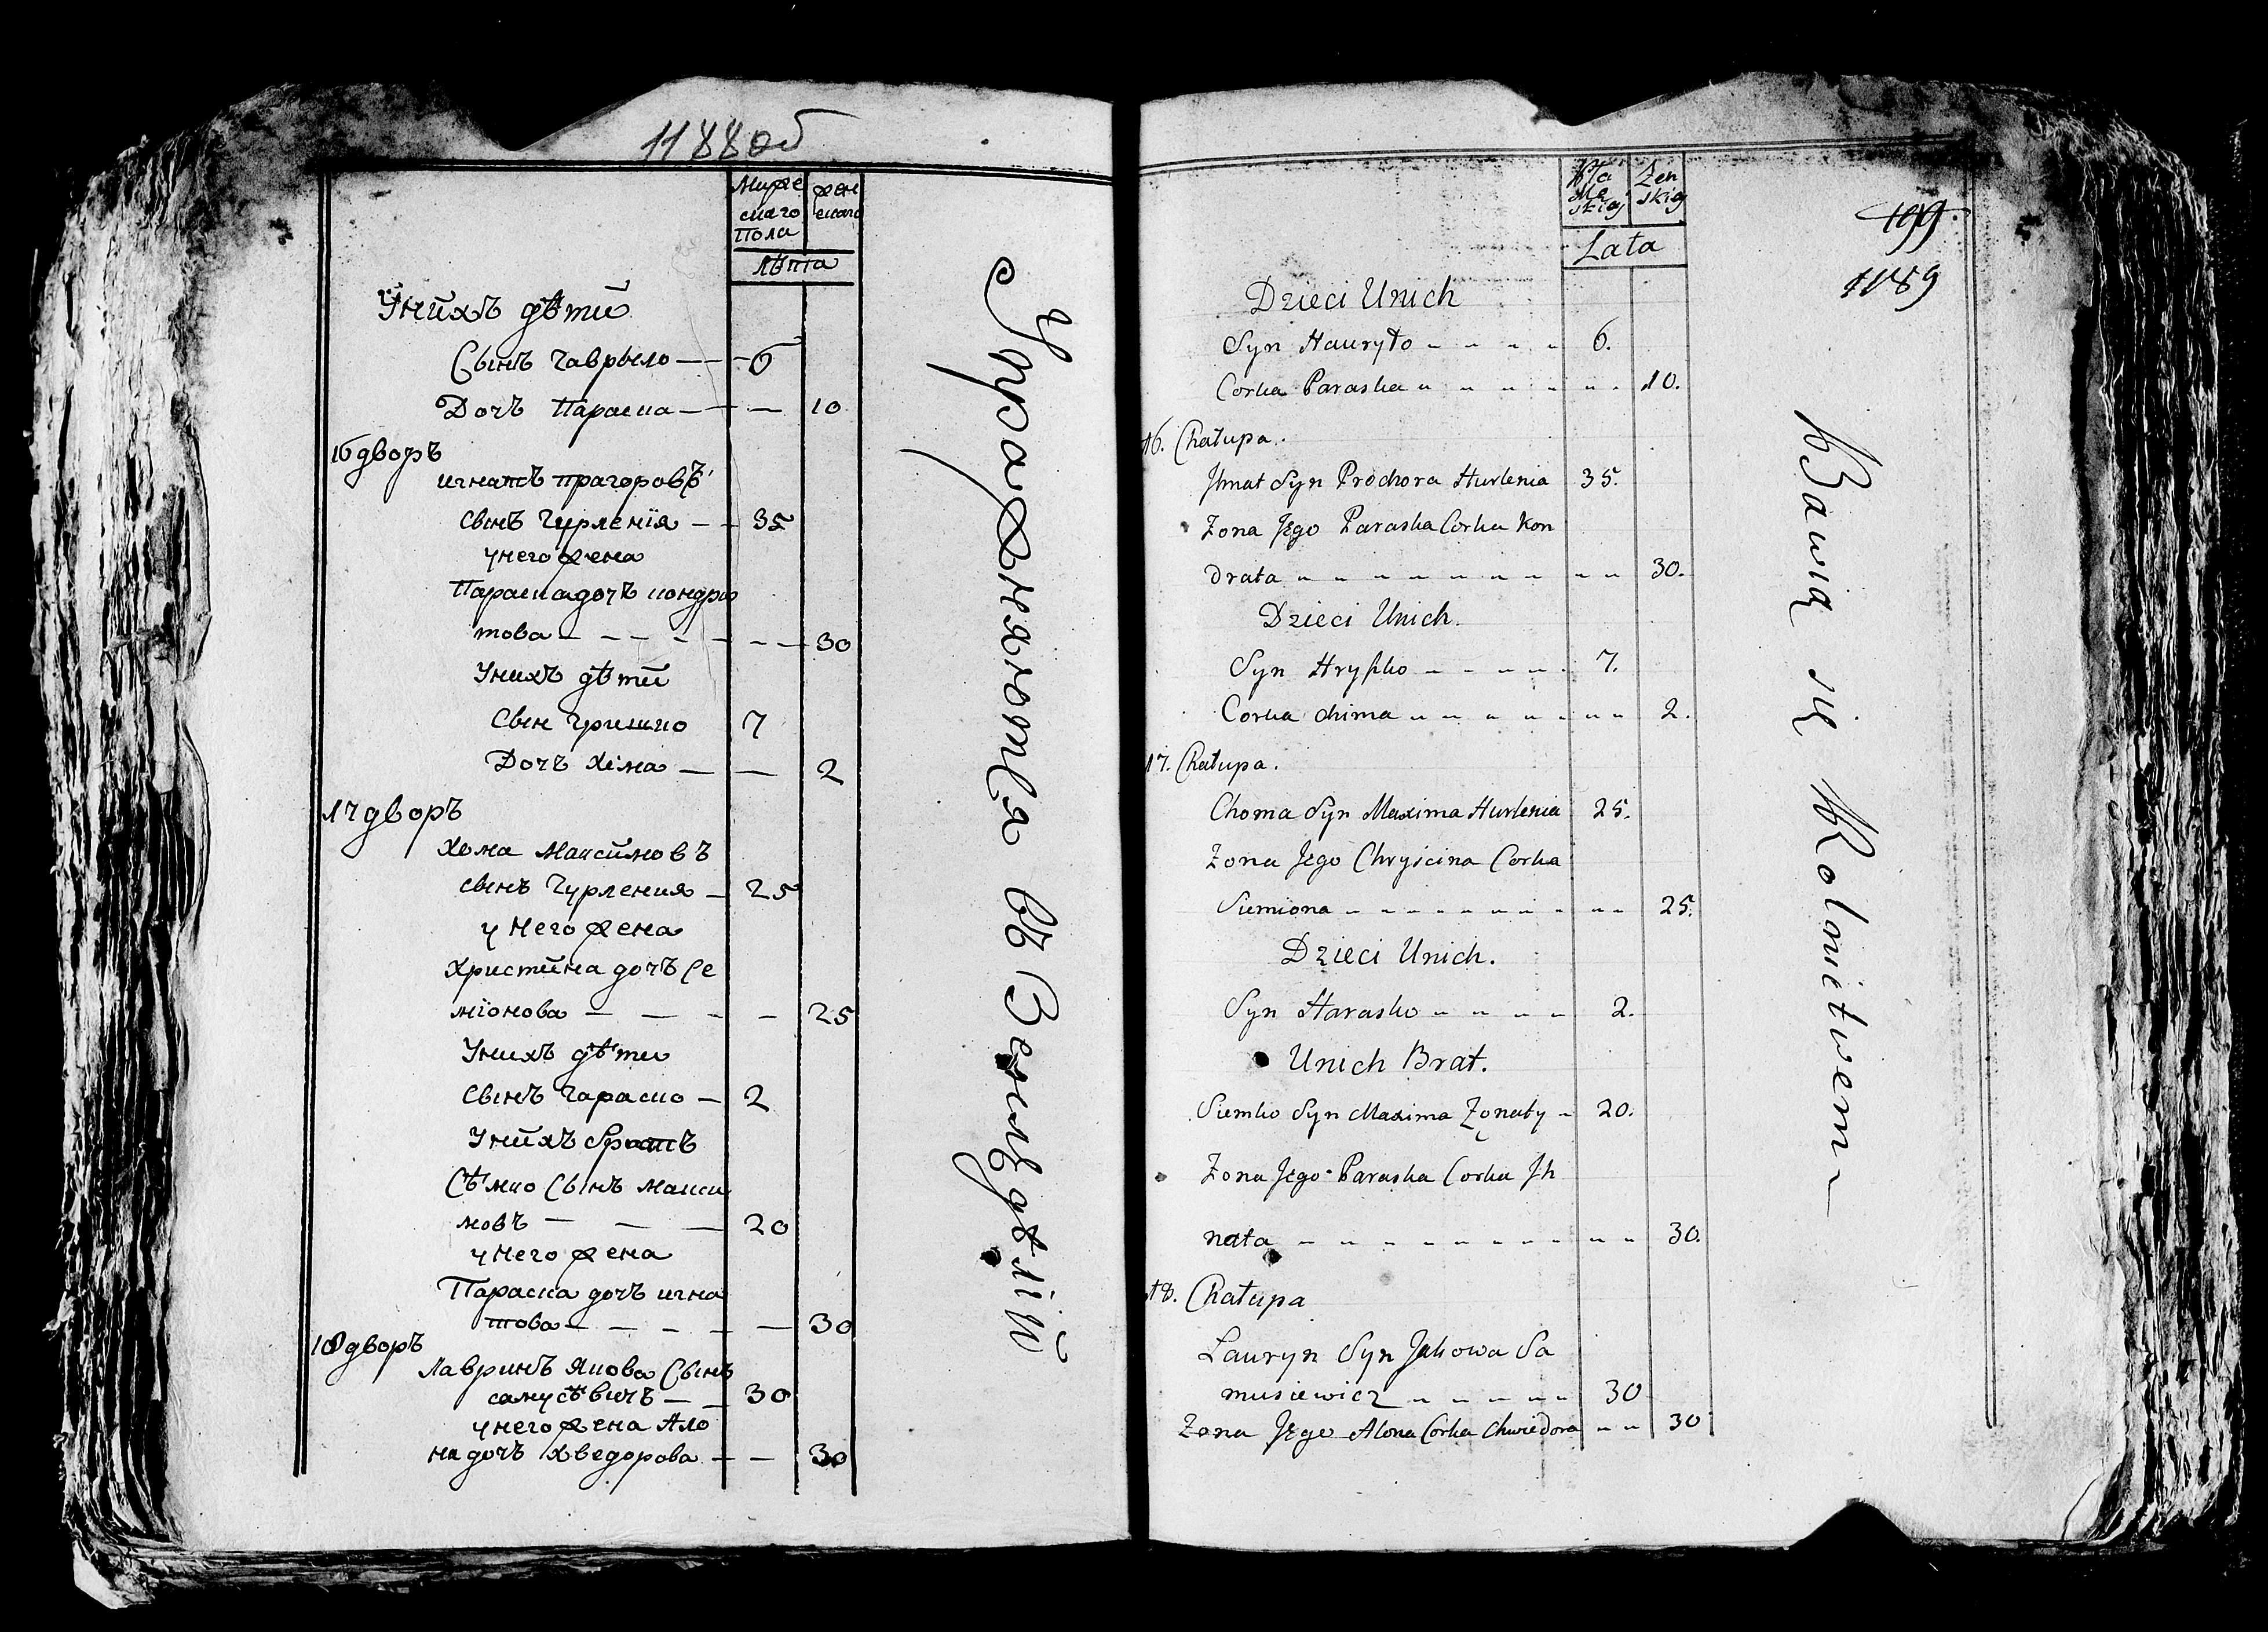 1188об
Муже
скаго
Пола
жен
скаго
лѣта
Унихъ дѣти
Сынъ гаврыло — — 6
Дочъ Параска — — — 10
16 дворъ
игнатъ прагоровъ
сынъ гурленїя — — 35
унего жена
Параска дочъ кондра
това — — — — — — — 30
Унихъ дѣти
Сын гришко 7
Дочъ Хима — — 2
17 дворъ
хома Максимовъ
сынъ гурления — 25
у него жена
христина дочъ Се
мїонова — — — — 25
Унихъ дѣти
Сынъ гараско — 2
Унихъ братъ
Сѣмко Сынъ макси
мовъ — — — 20
у него жена
Параска дочъ игна
това — — — — — 30
18 дворъ
Лавринъ Якова Сынъ
самусѣвичъ — — 30
унего жена Ало
на дочъ хведорова — — 30
Упражняются въ Земледѣлїй
Mę
skią
Zen
skią
Lata
199.
1189
Dzieci Unich
Syn Hauryło „ „ „ „ 6.
Corka Paraska „ „ „ „ „ „ 10.
16. Chałupa.
Jhnat Syn Prochora Hurlenia 35.
Zona Jego Paraska Corka Kon
drata „ „ „ „ „ „ „ „ „ 30.
Dzieci Unich.
Syn Hryszko „ „ „ „ 7.
Corka chima „ „ „ „ „ „ „ 2.
17. Chałupa.
Choma Syn Maxima Hurlenia 25.
Zona Jego Chryścina Corka
Siemiona „ „ „ „ „ „ „ „ 25.
Dzieci Unich.
Syn Harasko „ „ „ „ 2.
Unich Brat.
Siemko Syn Maxima Zonaty „ 20.
Zona Jego Paraska Corka Jh
nata „ „ „ „ „ „ „ „ „ „ 30.
18. Chałupa
Lauryn Syn Jakowa Sa
musiewicz „ „ „ „ „ 30
Zona Jego Alona Corka Chwiedora „ „ 30
Bawią się Rolnictwem